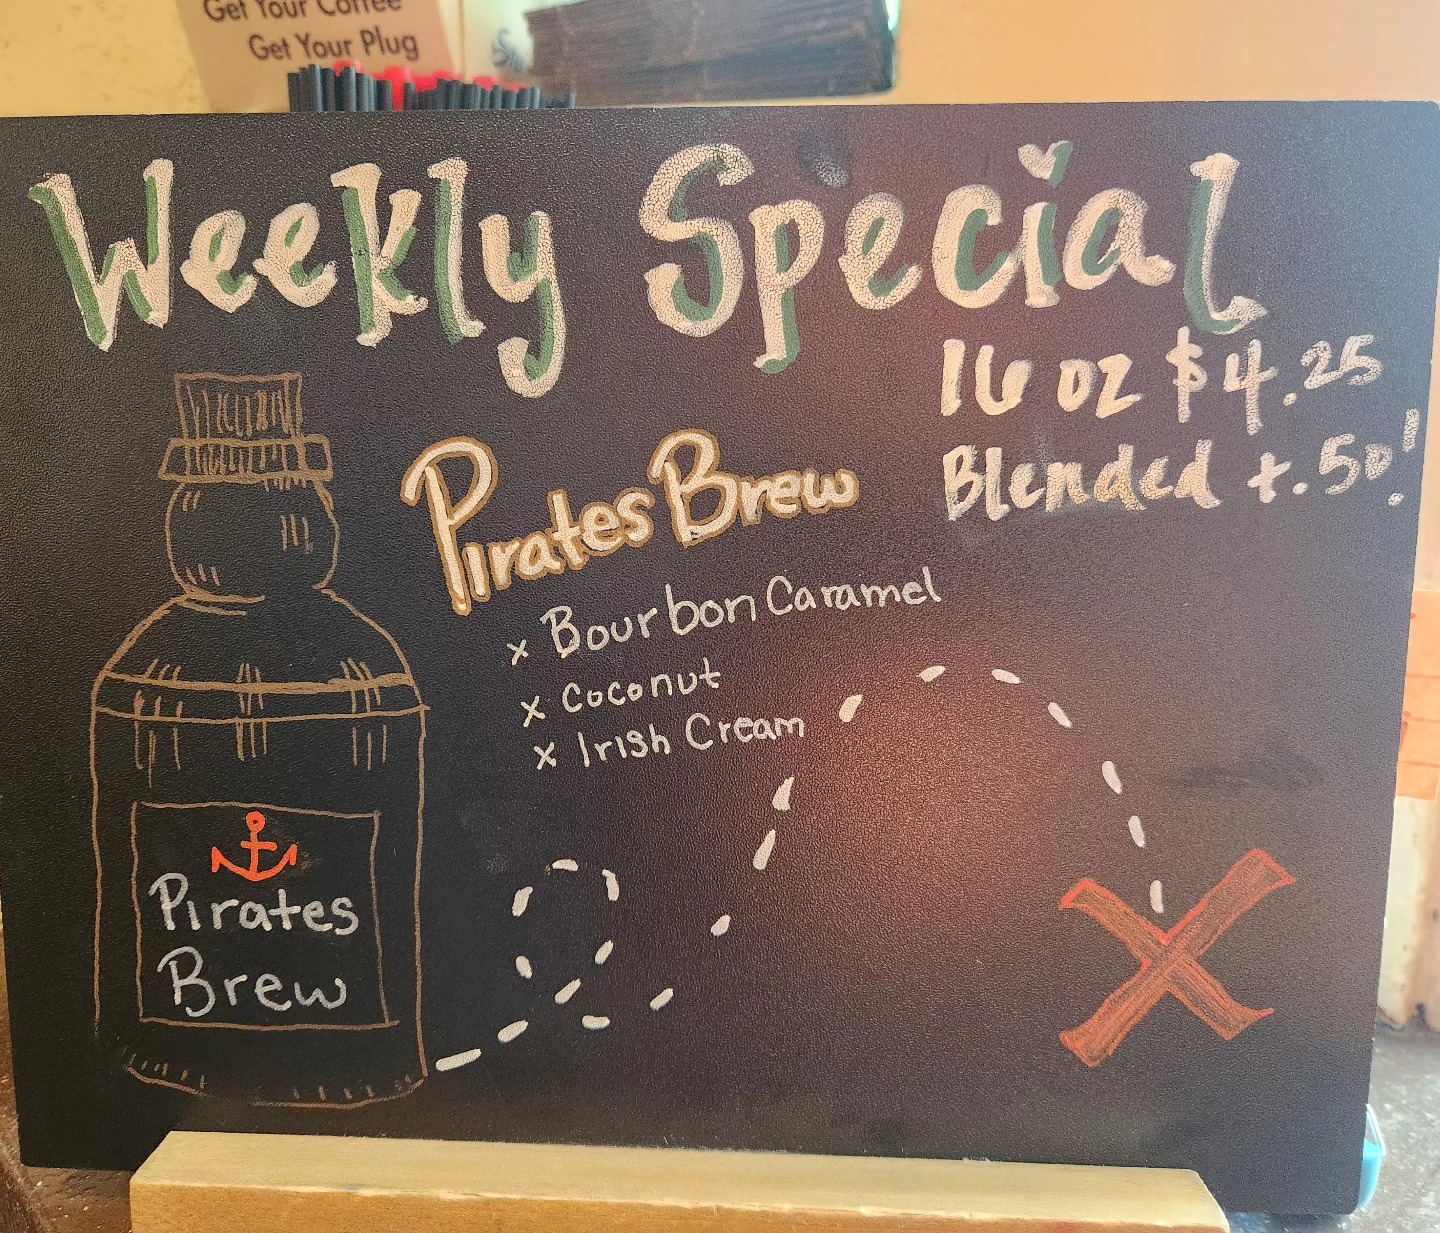 Get Your Coffee
Get Your Plug
Weekly Special
16 oz $4.25
Blended +.50!
Pirates Brew
x Bourbon Caramel
x Coconut
x Irish Cream
Pirates
Brew